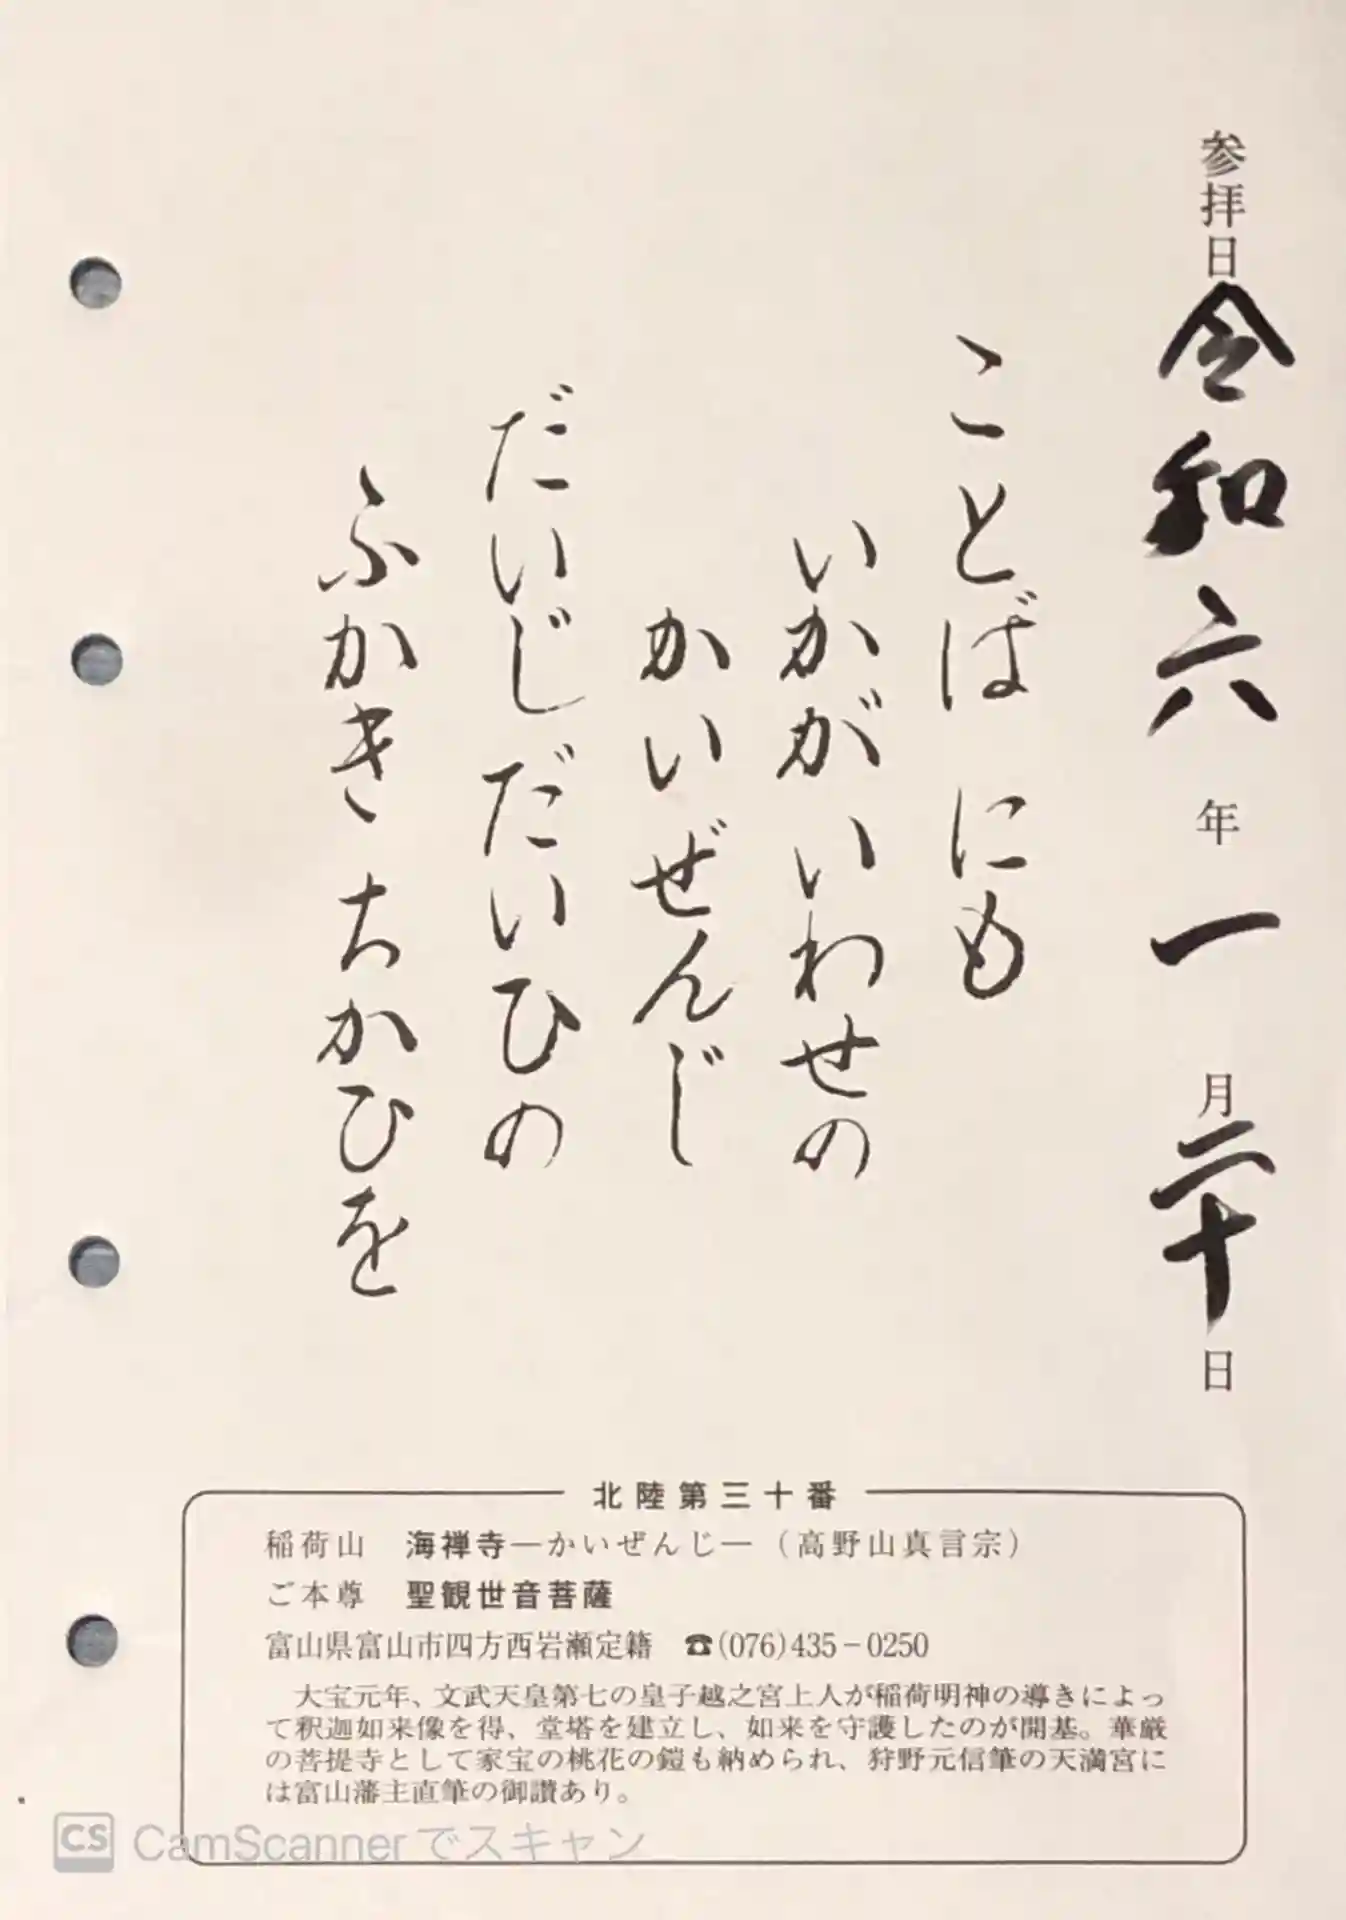 参拝日令和六年一月二十日
ことばにも
いかがいわせの
かいぜんじ
だいじだいひの
ふかきちかひを
北陸第三十番
稲荷山 海禅寺―かいぜんじ―（高野山真言宗）
ご本尊 聖観世音菩薩
富山県富山市四方西岩瀬定籍 ☎(076)435－0250
大宝元年、文武天皇第七の皇子越之宮上人が稲荷明神の導きによっ
て釈迦如来像を得、堂塔を建立し、如来を守護したのが開基。華厳
の菩提寺として家宝の桃花の鎧も納められ、狩野元信筆の天満宮に
は富山藩主直筆の御讃あり。
CS CamScannerでスキャン